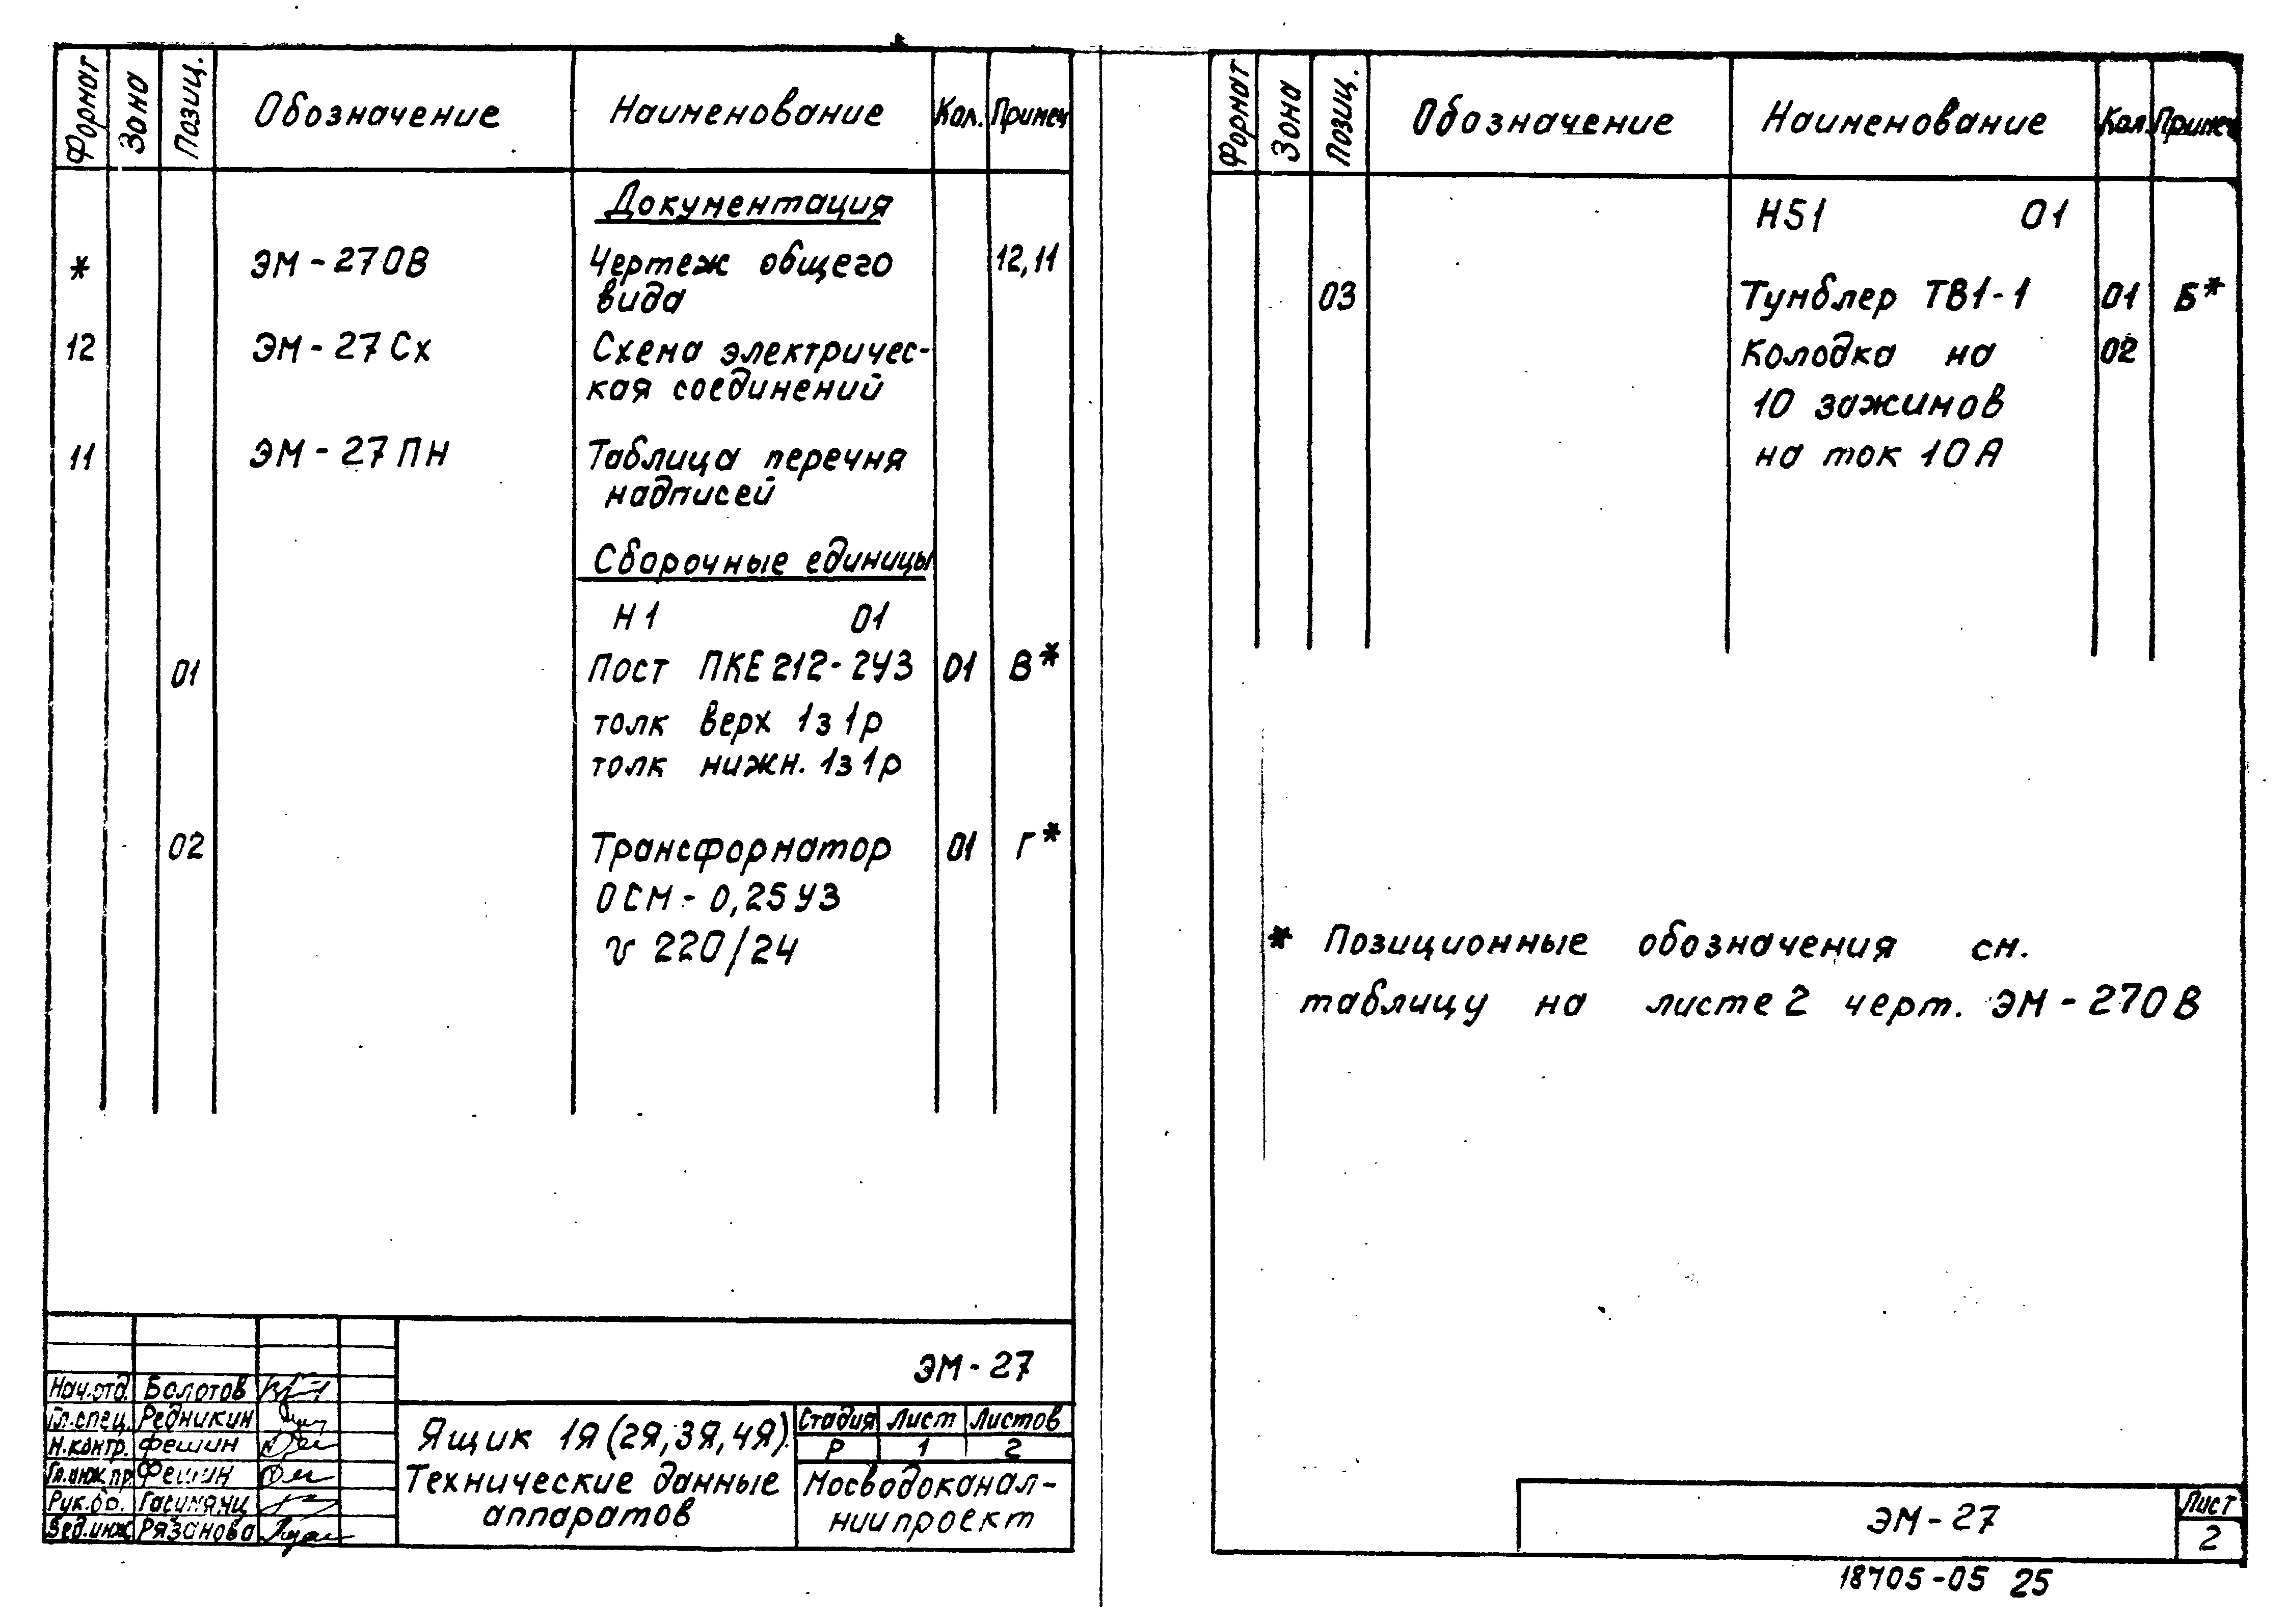 Формат Зона Позиц. Обозначение Наименование Кол. Примеч
Документация
* ЭМ-27ОВ Чертеж общего 12,11
вида
12 ЭМ-27Сх Схема электричес-
кая соединений
11 ЭМ-27ПН Таблица перечня
надписей
Сборочные единицы
Н1 01
01 Пост ПКЕ 212-2У3 01 В*
толк верх 1з1р
толк нижн. 1з1р
02 Трансформатор 01 Г*
ОСМ-0,25У3
v 220/24
ЭМ-27
Нач.отд. Болотов
Гл.спец. Редникин
Н.контр. Фешин
Гл.инж.пр. Фешин
Рук.бр.
Вед.инж Рязанова
Ящик 1Я(2Я,3Я,4Я).
Технические данные
аппаратов
Стадия Лист Листов
Р 1 2
Мосводоканал-
ниипроект
Формат Зона Позиц. Обозначение Наименование Кол. Примеч
Н51 01
03 Тумблер ТВ1-1 01 Б*
Колодка на 02
10 зажимов
на ток 10А
* Позиционные обозначения см.
таблицу на листе 2 черт. ЭМ-27ОВ
ЭМ-27
Лист
2
18705-05 25